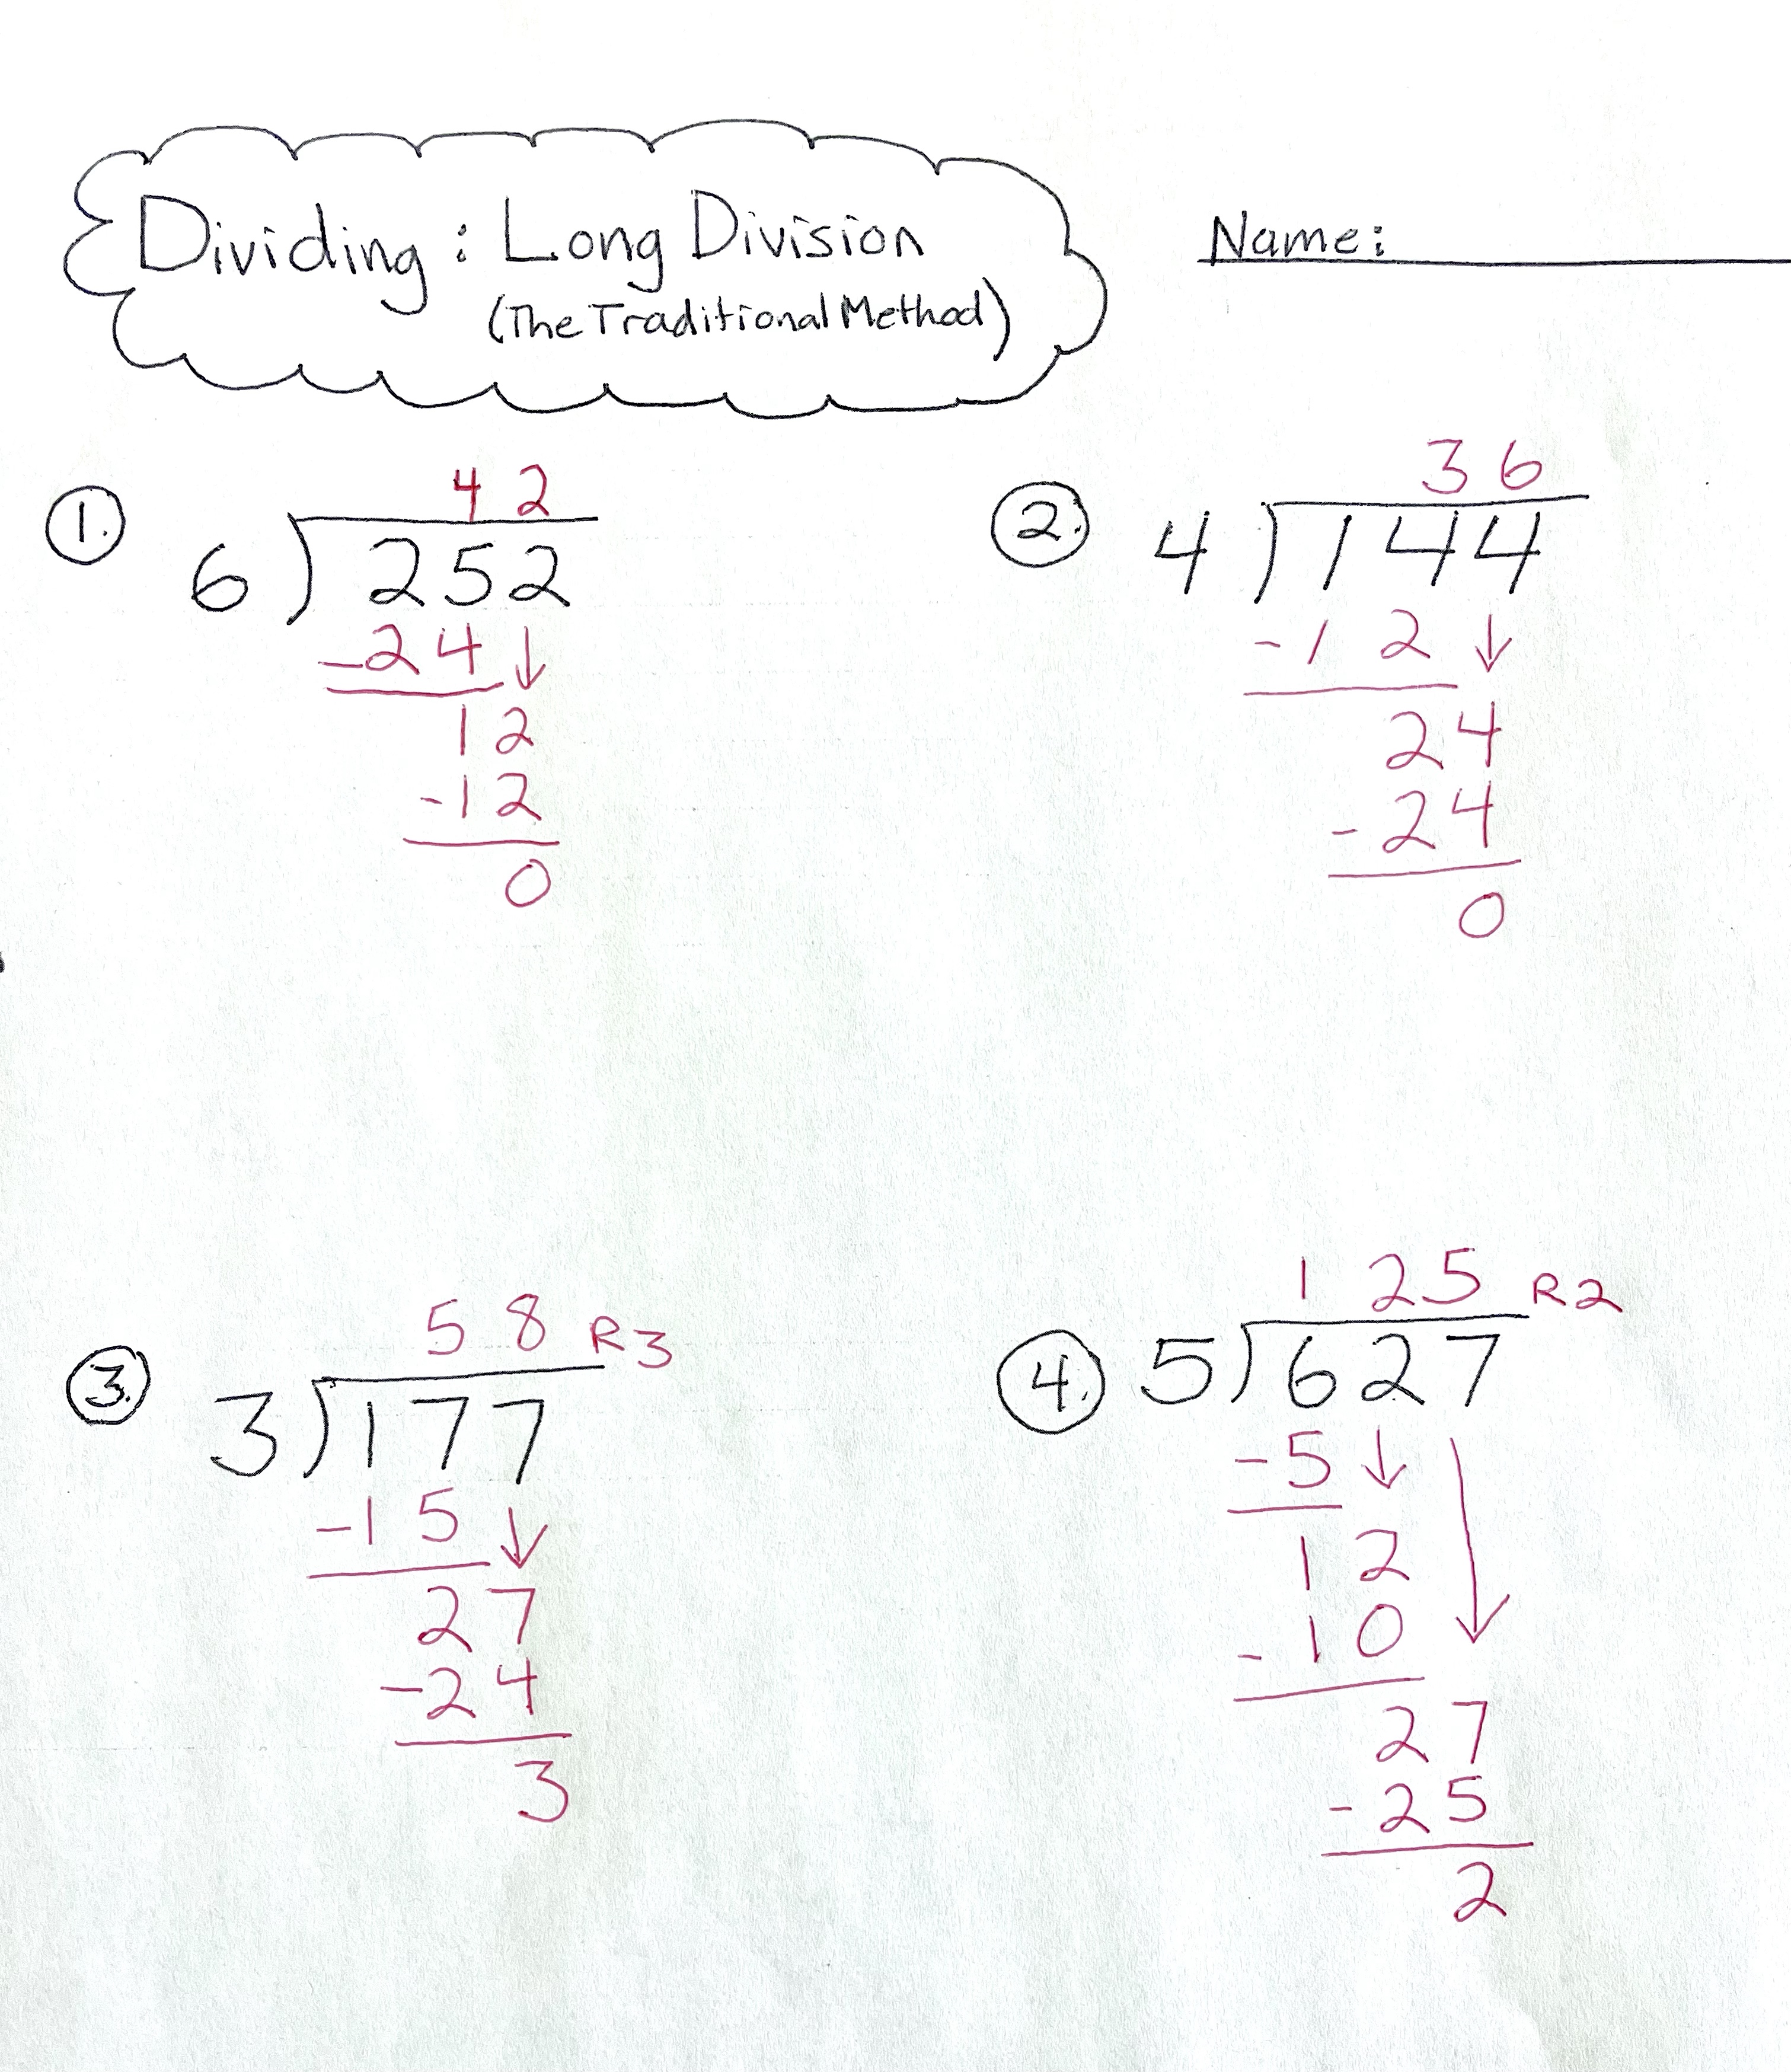 Dividing: Long Division
(The Traditional Method)
Name:
1.
4 2
6 ) 252
-24 ↓
12
-12
0
2.
3 6
4 ) 144
-1 2 ↓
24
-24
0
3.
5 8 R3
3 ) 177
-1 5 ↓
27
-24
3
4.
1 25 R2
5 ) 627
-5 ↓
1 2
-1 0 ↓
27
-25
2